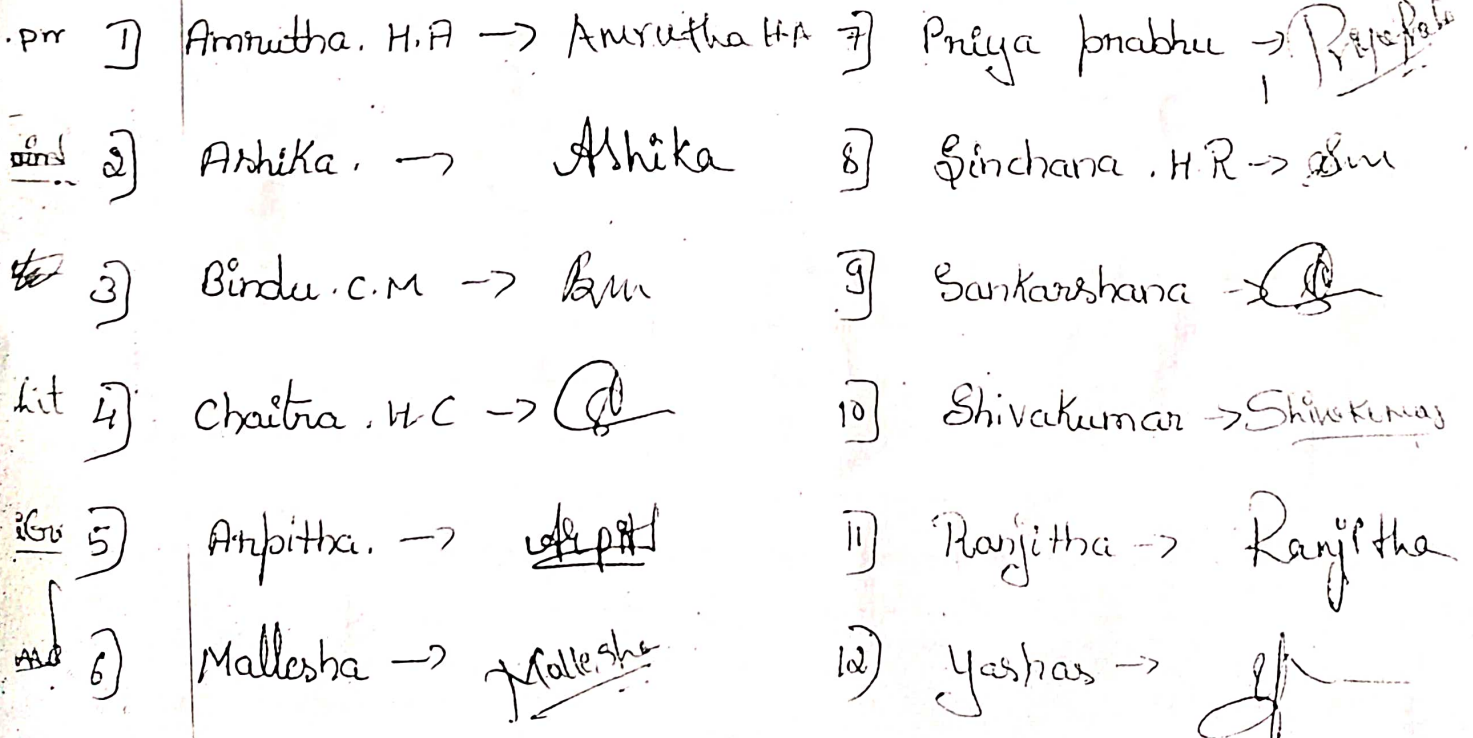 1] Amrutha. H.A -> Amrutha H.A
2] Ashika. -> Ashika
3] Bindu. C.M ->
4] Chaitra. H.C ->
5] Arpitha. ->
6] Mallesha -> Mallesha
7] Priya prabhu ->
8] Sinchana. H R ->
9] Sankarshana ->
10] Shivakumar -> Shivakumar
11] Ranjitha -> Ranjitha
12] Yashas ->